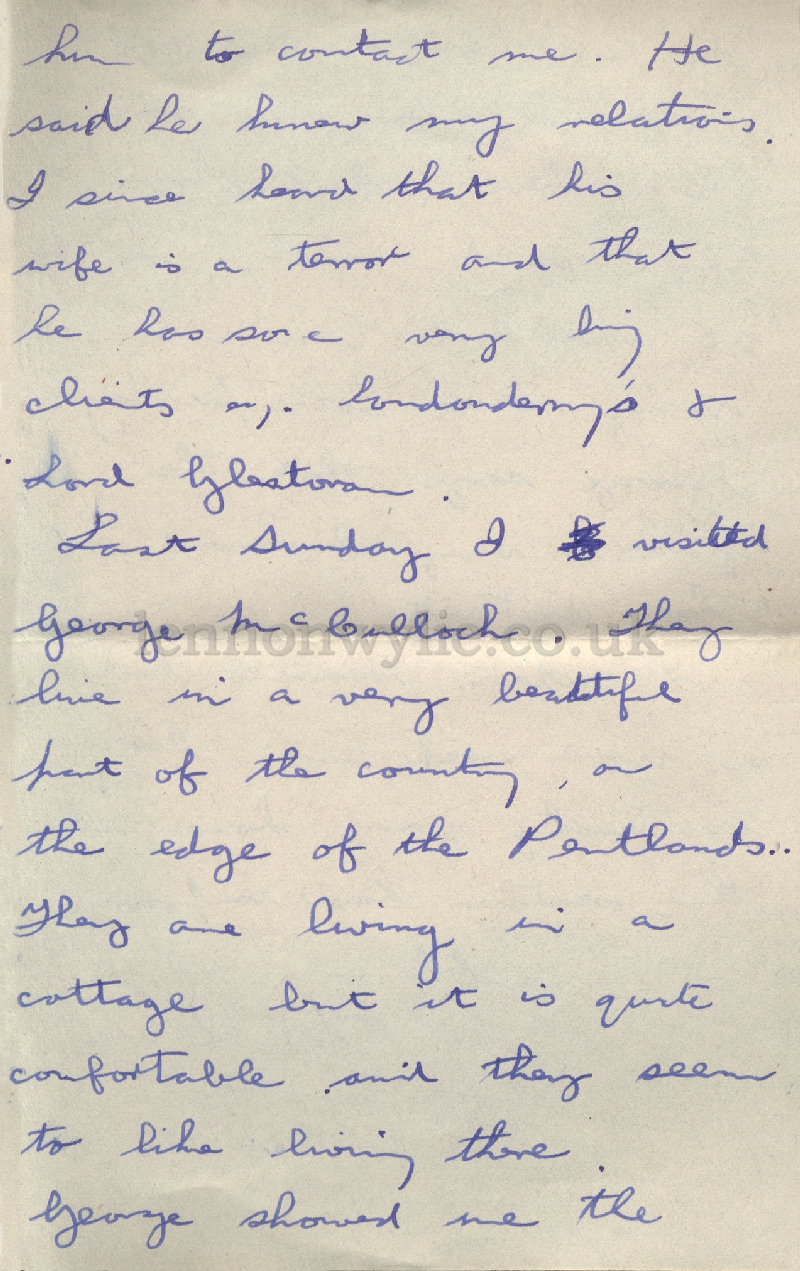 him to contact me. He
said he knew my relations.
I since heard that his
wife is a terror and that
he has some very big
clients eg. Londonderry's &
Lord Glentoran.
Last Sunday I visited
George McCulloch. They
lennonwylie.co.uk
live in a very beautiful
part of the country, on
the edge of the Pentlands..
They are living in a
cottage but it is quite
comfortable and they seem
to like living there.
George showed me the